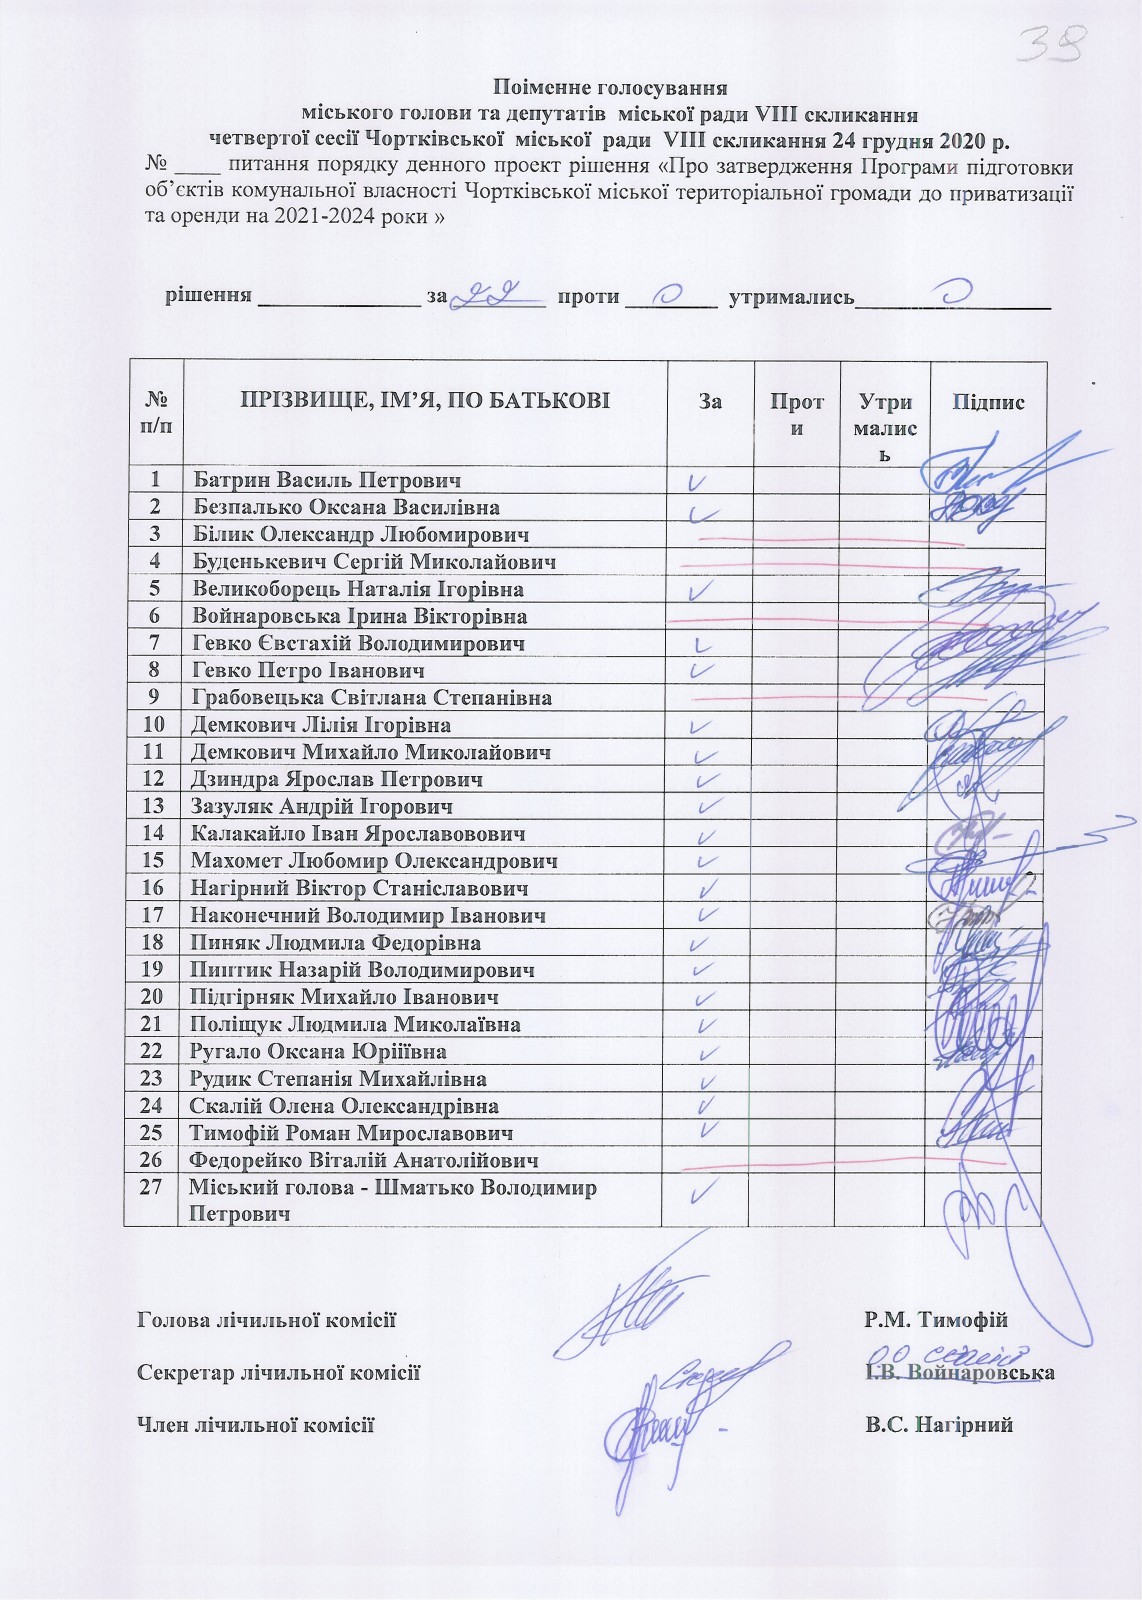 38
Поіменне голосування
міського голови та депутатів міської ради VIII скликання
четвертої сесії Чортківської міської ради VIII скликання 24 грудня 2020 р.
№ ____ питання порядку денного проект рішення «Про затвердження Програми підготовки
об’єктів комунальної власності Чортківської міської територіальної громади до приватизації
та оренди на 2021-2024 роки »
рішення ______________ за 22 проти 0 утримались 0
№ п/п ПРІЗВИЩЕ, ІМ’Я, ПО БАТЬКОВІ За Проти Утрималис ь Підпис
1 Батрин Василь Петрович
2 Безпалько Оксана Василівна
3 Білик Олександр Любомирович
4 Буденькевич Сергій Миколайович
5 Великоборець Наталія Ігорівна
6 Войнаровська Ірина Вікторівна
7 Гевко Євстахій Володимирович
8 Гевко Петро Іванович
9 Грабовецька Світлана Степанівна
10 Демкович Лілія Ігорівна
11 Демкович Михайло Миколайович
12 Дзиндра Ярослав Петрович
13 Зазуляк Андрій Ігорович
14 Калакайло Іван Ярославовович
15 Махомет Любомир Олександрович
16 Нагірний Віктор Станіславович
17 Наконечний Володимир Іванович
18 Пиняк Людмила Федорівна
19 Пинтик Назарій Володимирович
20 Підгірняк Михайло Іванович
21 Поліщук Людмила Миколаївна
22 Ругало Оксана Юріїівна
23 Рудик Степанія Михайлівна
24 Скалій Олена Олександрівна
25 Тимофій Роман Мирославович
26 Федорейко Віталій Анатолійович
27 Міський голова - Шматько Володимир
Петрович
Голова лічильної комісії Р.М. Тимофій
Секретар лічильної комісії І.В. Войнаровська
Член лічильної комісії В.С. Нагірний